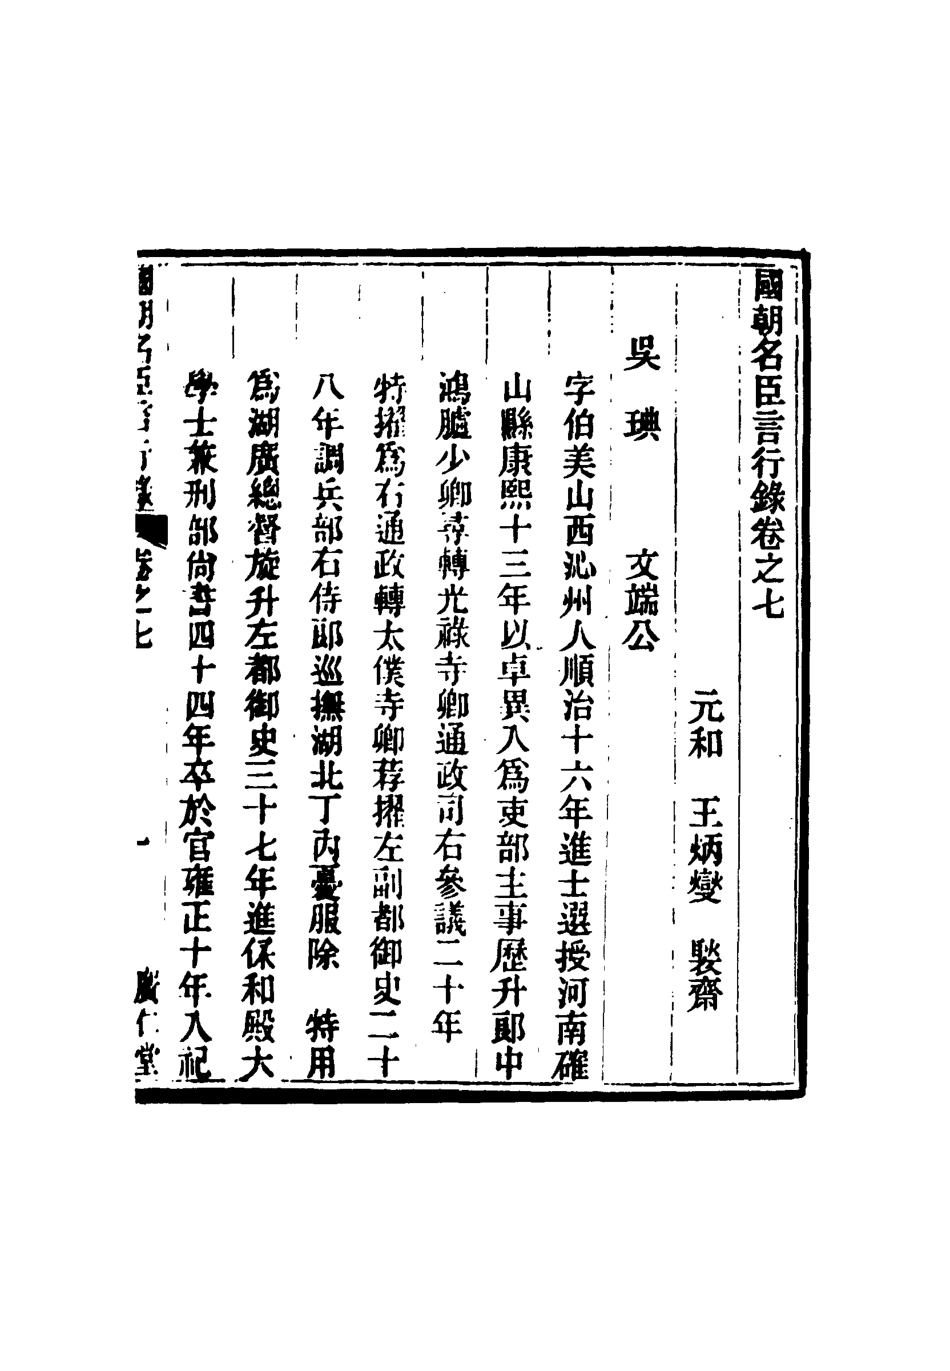 國朝名臣言行錄卷之七
元和 王炳燮 㛄齋
吳琠 文端公
字伯美山西沁州人順治十六年進士選授河南確
山縣康熙十三年以卓異入爲吏部主事歷升郎中
鴻臚少卿尋轉光祿寺卿通政司右參議二十年
特擢爲右通政轉太僕寺卿荐擢左副都御史二十
八年調兵部右侍郎巡撫湖北丁內憂服除 特用
爲湖廣總督旋升左都御史三十七年進保和殿大
學士兼刑部尙書四十四年卒於官雍正十年入祀
國朝名臣言行錄 卷之七 一 廣仁堂